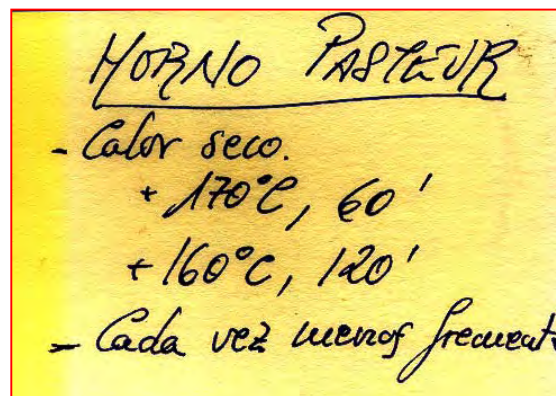 HORNO PASTEUR
- Calor seco.
+ 170°C, 60'
+ 160°C, 120'
- Cada vez menos frecuent